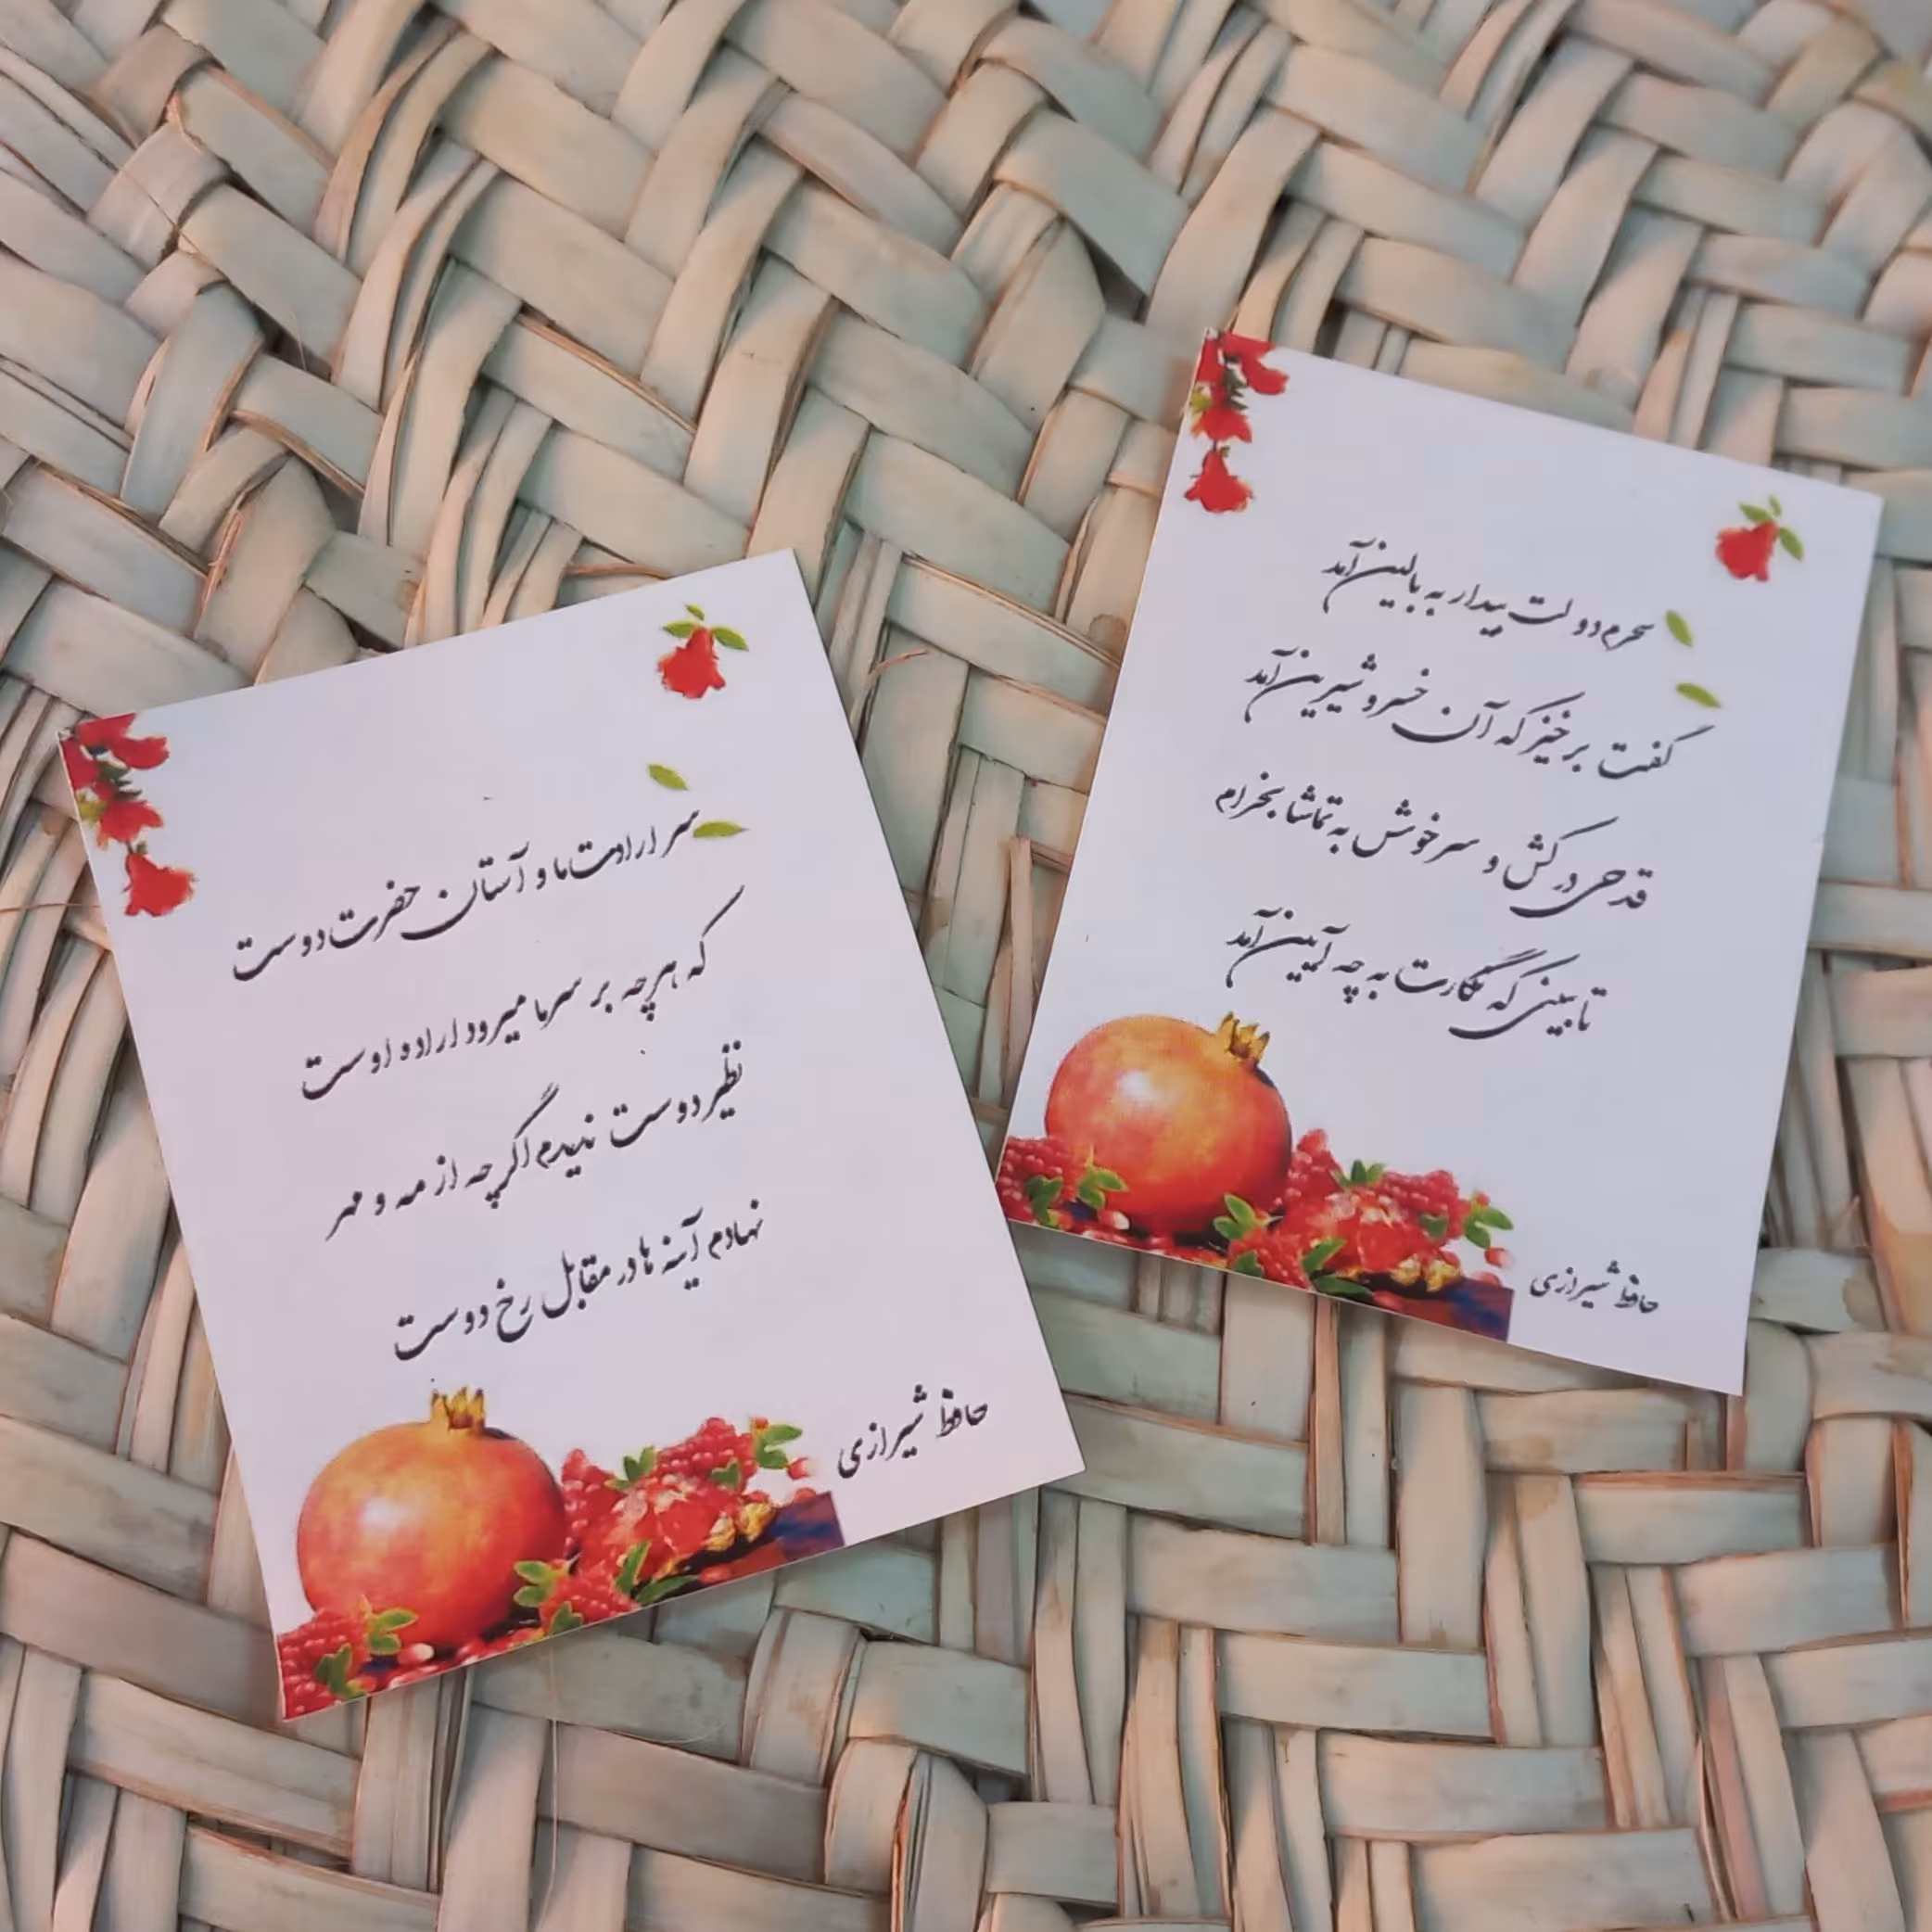 سحرم دولت بیدار به بالین آمد
گفت برخیز که آن خسرو شیرین آمد
قدحی درکش و سرخوش به تماشا بخرام
تا ببینی که نگارت به چه آیین آمد
حافظ شیرازی
سر ارادت ما و آستان حضرت دوست
که هرچه بر سر ما میرود اراده اوست
نظیر دوست ندیدم اگرچه از مه و مهر
نهادم آینه ها در مقابل رخ دوست
حافظ شیرازی